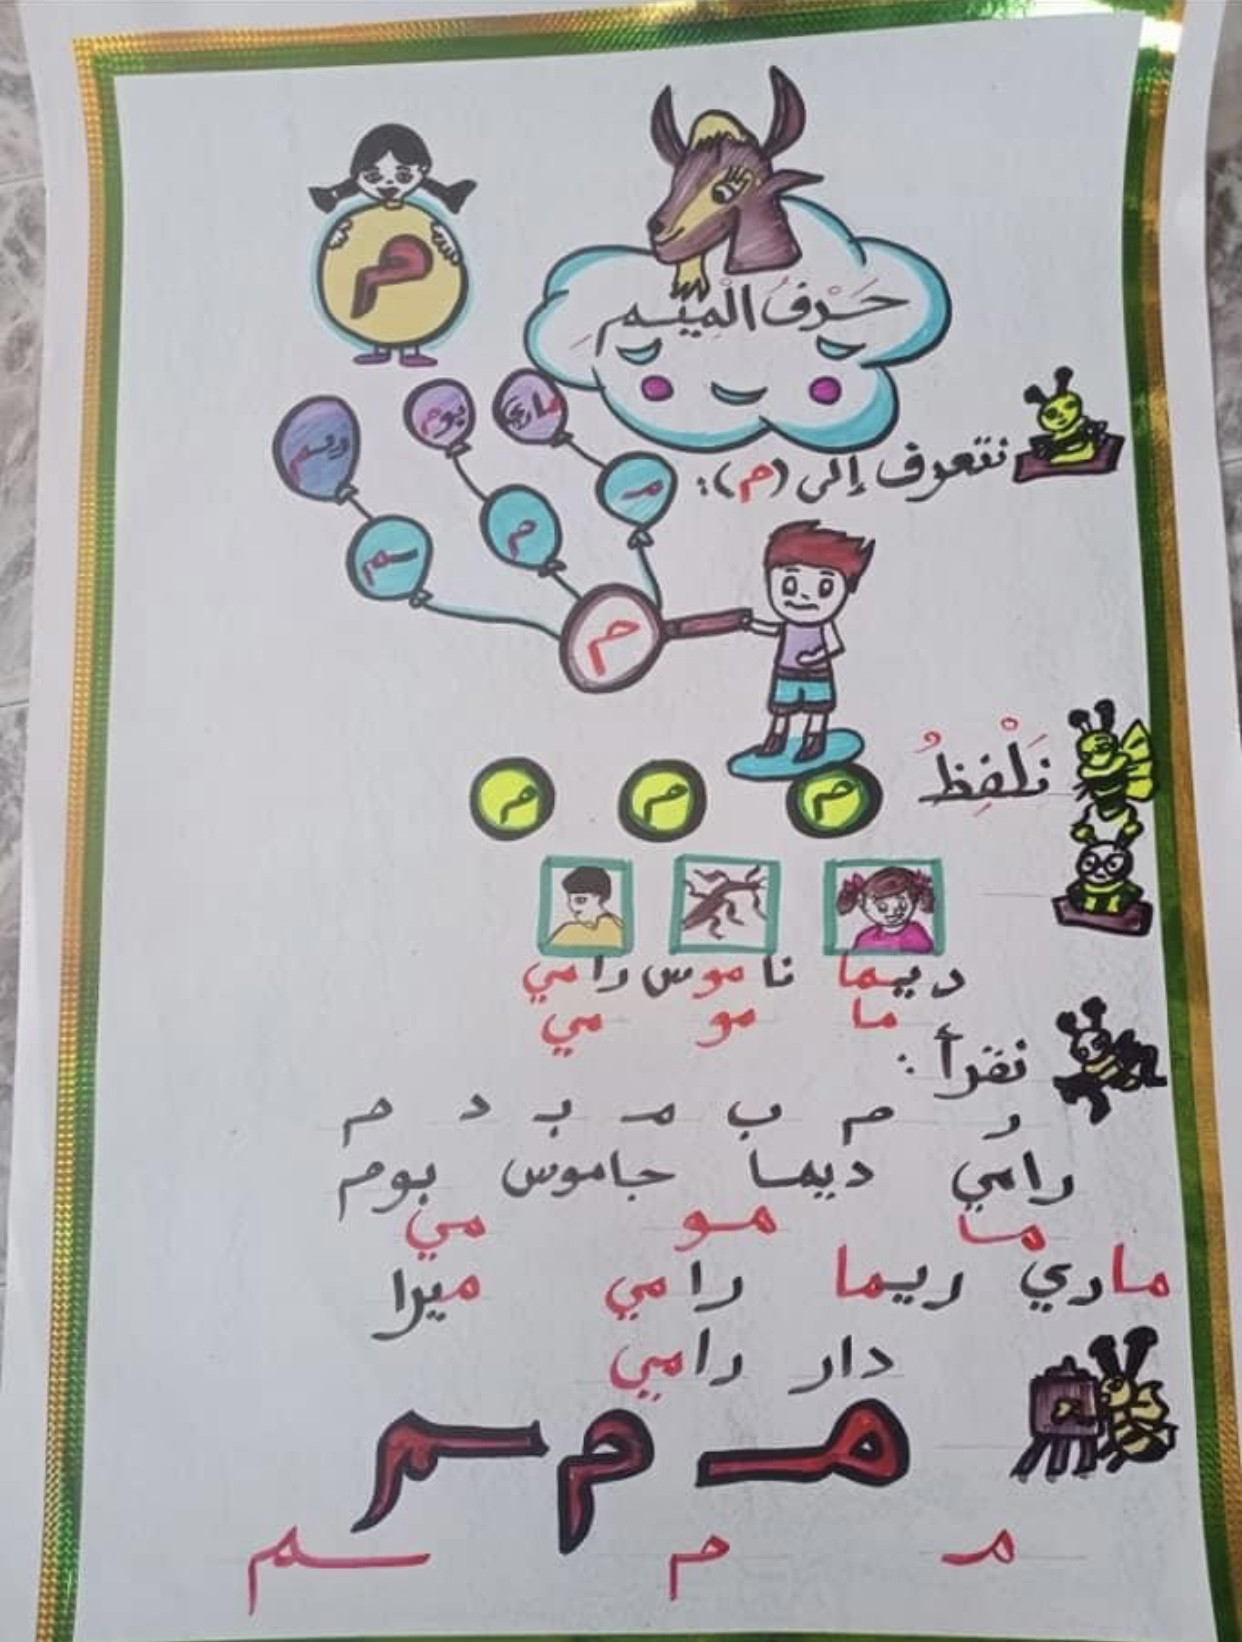 م
حَرْفُ الْمِيْمِ
ماري يوم ريم
نتعرف إلى (م):
مـ م ـم
م
نَلْفِظُ
م م م
ديما ناموس رامي
ما مو مي
نقرأ :
ر م ب مـ بـ د م
رامي ديما جاموس بوم
ما مو مي
ماري ريما رامي ميرا
دار رامي
مـ م ـم
مـ م ـم